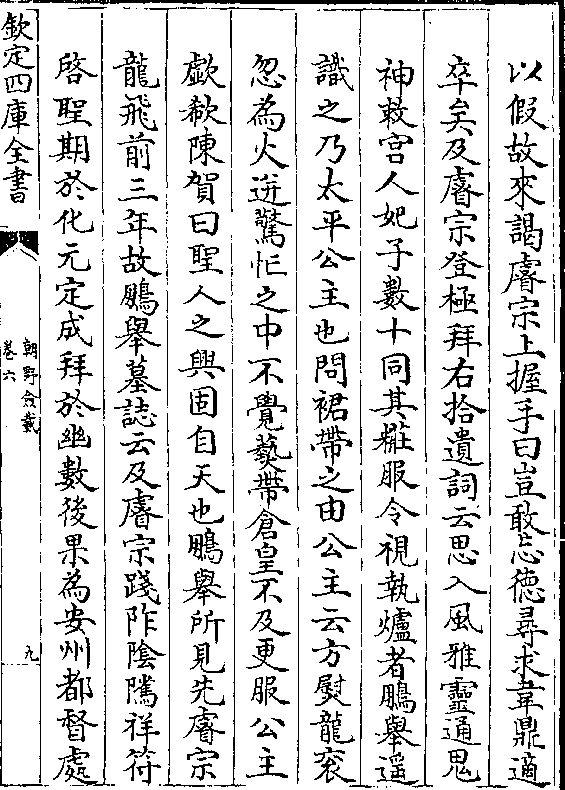 以假故來謁睿宗上握手曰豈敢忘德尋求韋鼎適
卒矣及睿宗登極拜右拾遺詞云思入風雅靈通鬼
神敕宮人妃子數十同其糚服令視執爐者鵬舉遥
識之乃太平公主也問裙帶之由公主云方熨龍衮
忽為火迸驚忙之中不覺爇帶倉皇不及更服公主
歔欷陳賀曰聖人之興固自天也鵬舉所見先睿宗
龍飛前三年故鵬舉墓誌云及睿宗踐阼隂隲祥符
啓聖期於化元定成拜於幽數後果為安州都督處
欽定四庫全書
朝野僉載
卷六
九